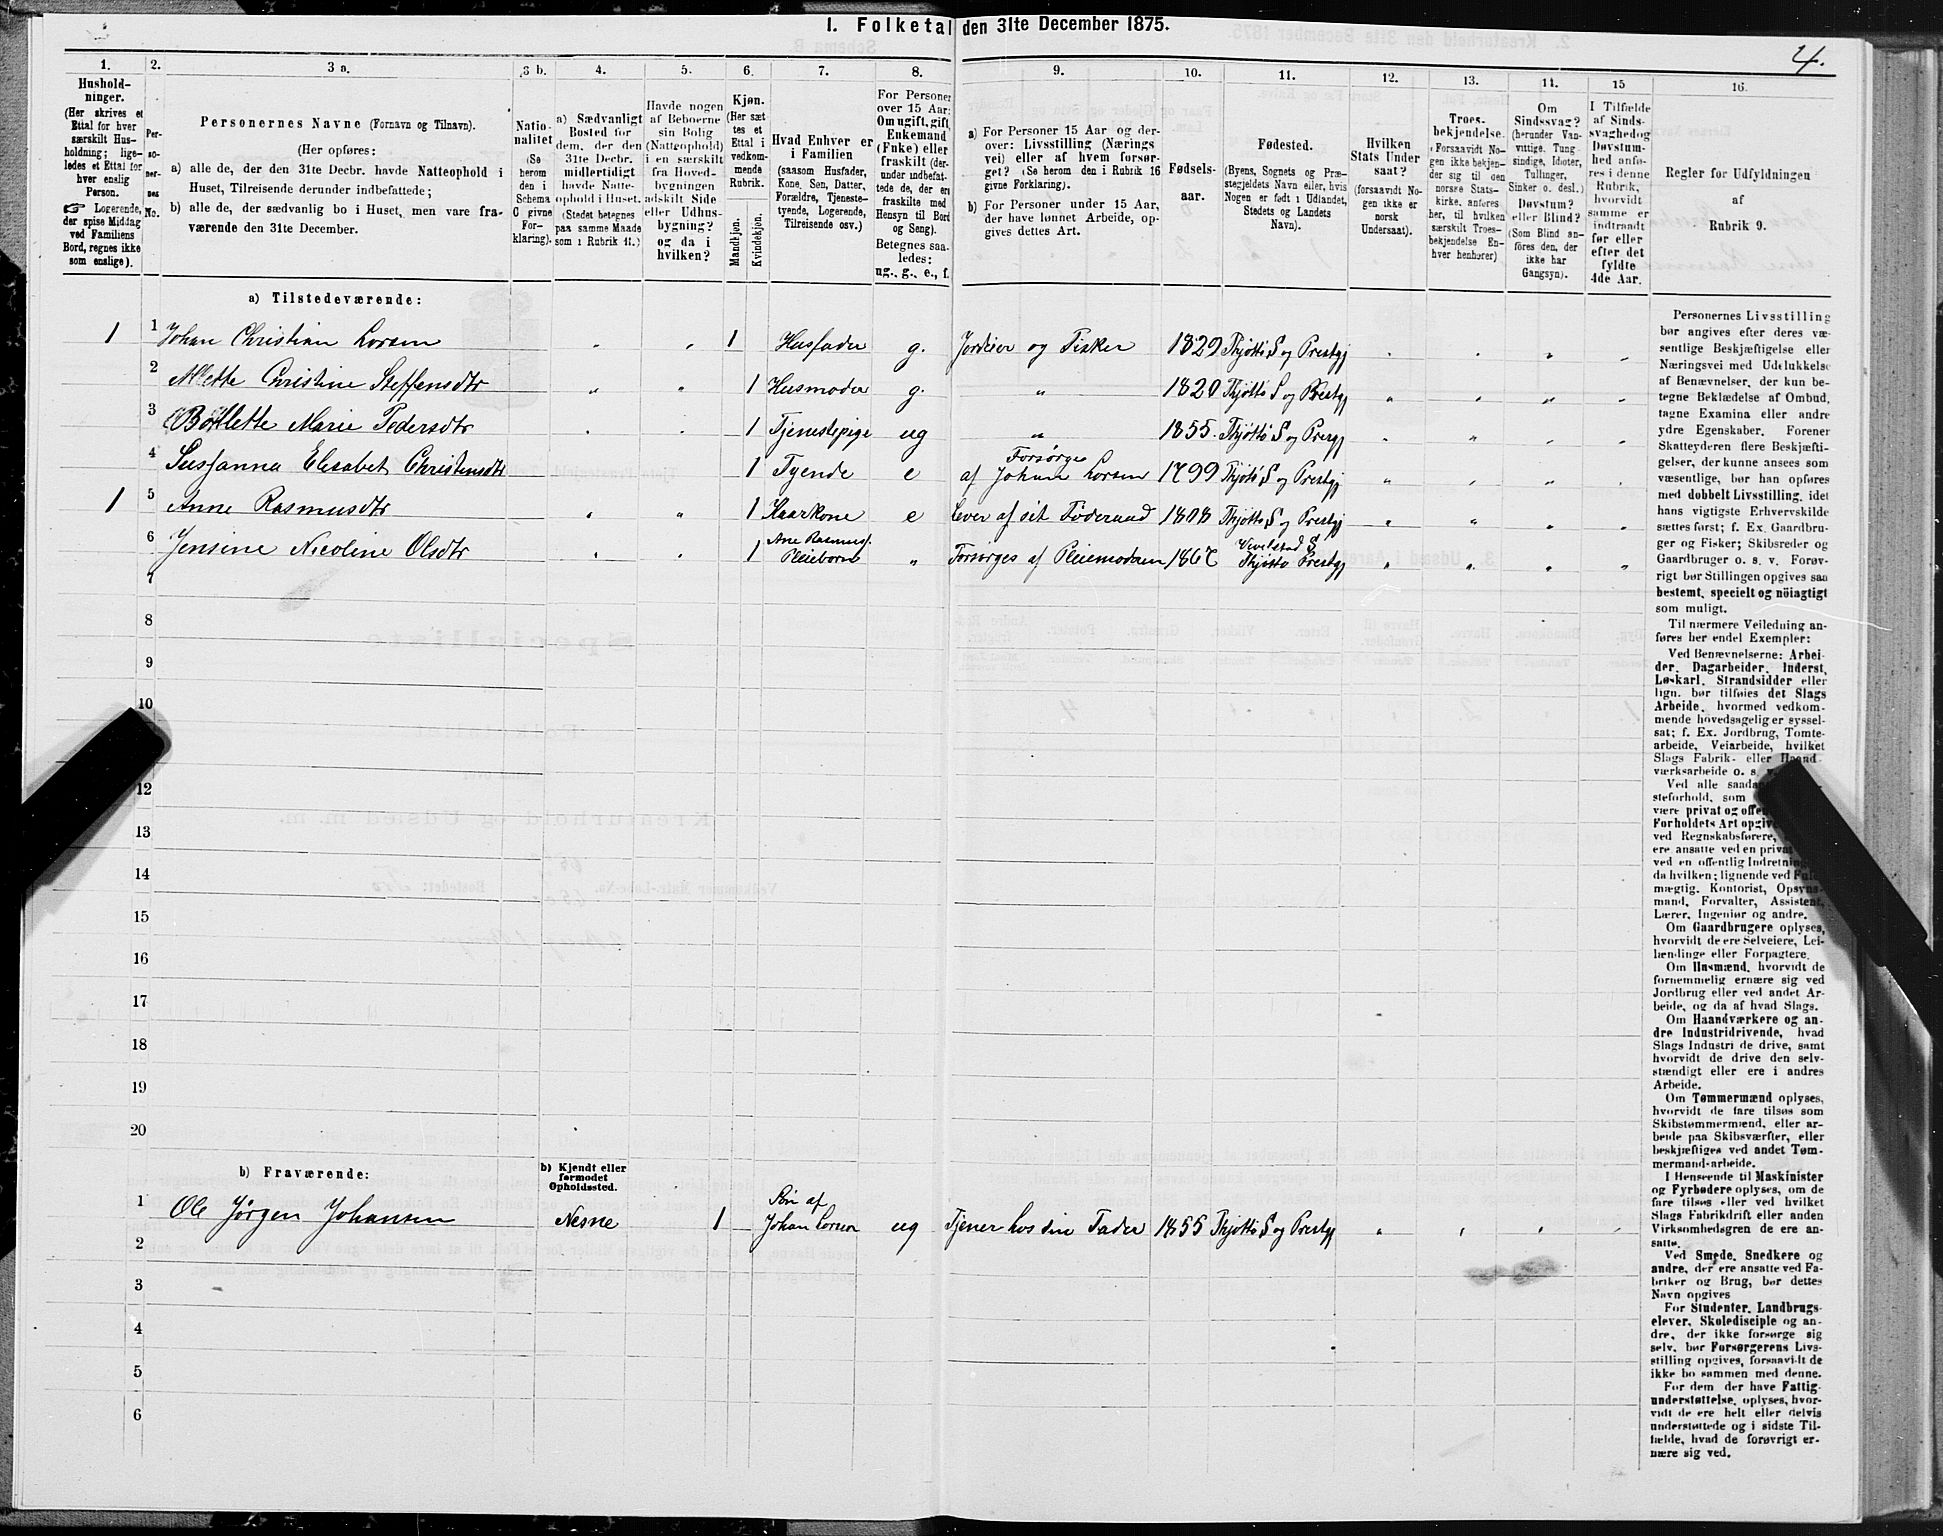 1. Folketal den 31te December 1875.
4.
1.
Hushold-
ninger.
(Her skrives et
Ettal for hver
særskilt Hus-
holdning; lige-
ledes et Ettal for
hver enslig
Person.
☞ Logerende,
der spise Middag
ved Familiens
Bord, regnes ikke
som enslige).
2.
Per-
so-
ner-
nes
No.
3 a.
Personernes Navne (Fornavn og Tilnavn).
(Her opføres:
a) alle de, der den 31te Decbr. havde Natteophold i
Huset, Tilreisende derunder indbefattede;
b) alle de, der sædvanlig bo i Huset, men vare fra-
værende den 31te December.
3 b.
Natio-
nalitet
(Se
herom
den i
Schema
C givne
For-
klaring).
4.
a) Sædvanligt
Bosted for
dem, der den
31te Decbr.
midlertidigt
havde Natte-
ophold i Huset.
(Stedet betegnes
paa samme Maade
som i Rubrik 11.)
5.
Havde nogen
af Beboerne
sin Bolig
(Natteophold)
i en særskilt
fra Hoved-
bygningen
adskilt Side
eller Udhus-
bygning?
og da i
hvilken?
6.
Kjøn.
(Her sæt-
tes et
Ettal i
vedkom-
mende
Rubrik.
Mandkjøn.
Kvindekjøn.
7.
Hvad Enhver er
i Familien
(saasom Husfader,
Kone, Søn, Datter,
Forældre, Tjeneste-
tyende, Logerende,
Tilreisende osv.)
8.
For Personer
over 15 Aar:
Om ugift, gift
Enkemand
(Enke) eller
fraskilt (der-
under indbefat-
tede de, der ere
fraskilte med
Hensyn til Bord
og Seng).
Betegnes saa-
ledes:
ug., g., e., f.
9.
a) For Personer 15 Aar og der-
over: Livsstilling (Nærings
vei) eller af hvem forsør-
get? (Se herom den i Rubrik 16
givne Forklaring).
b) For Personer under 15 Aar,
der have lønnet Arbeide, op-
gives dettes Art.
10.
Fødsels-
aar.
11.
Fødested.
(Byens, Sognets og Præ-
stegjeldets Navn eller, hvis
Nogen er født i Udlandet,
Stedets og Landets
Navn).
12.
Hvilken
Stats Under
saat?
(forsaavidt No-
gen ikke er
norsk
Undersaat).
13.
Troes-
bekjendelse.
(Forsaavidt No-
gen ikke bekjen-
der sig til den
norske Stats-
kirke, anføres
her, til hvilken
særskilt Troes-
bekjendelse En-
hver henhører)
14.
Om
Sindssvag?
(herunder Van-
vittige, Tung-
sindige, Idioter,
Tullinger,
Sinker o. desl.)
Døvstum?
eller Blind?
(Som Blind an-
føres den, der
ikke har
Gangsyn).
15
I Tilfælde
af Sinds-
svaghedog
Døvstum-
hed anfø-
res i denne
Rubrik,
hvorvidt
samme er
indtraadt
før eller
efter det
fyldte
4de Aar.
16.
Regler for Udfyldningen
af
Rubrik 9.
a) Tilstedeværende:
1 1 Johan Christian Lorsen „ „ 1 Husfader g. Jordeier og Fisker 1829 Thjøttø S og Prestgj „ „ „ „
2 Mette Christine Steffensdtr „ „ 1 Husmoder g. „ 1820 Thjøttø S og Prestgj „ „ „ „
3 Bollette Marie Pedersdtr „ „ 1 Tjenestepige ug „ 1855. Thjøttø S og Presgj „ „ „ „
4 Susfanna Elisabet Christensdtr 1 Tyende e Forsørges
af Johan Lorsen 1799 Thjøtø S og Prestgj „ „ „ „
1 5 Anne Rasmusdtr „ „ 1 Kaarkone e Lever af sit Føderaad 1808 Thjøttø S og Prestgj „ „ „ „
6 Jensine Nicoline Olsdtr „ „ 1 Ane Rasmus.
Pleiebarn „ Forsørges af Pleiemoderen 1867 Vevelstad S
Thjøttø Prestgj „ „ „ „
7
8
9
10
12
13
14
15
16
17
18
19
20
b) Fraværende:
b) Kjendt eller
formodet
Opholdssted.
1 Ole Jørgen Johansen Nesne 1 Søn af
Johan Lorsen ug Tjener hos sin Fader 1855 Thjøttø S og Prestgj „ „ „ „
2
3
4
5
6
Personernes Livsstilling
bør angives efter deres væ-
sentlige Beskjæftigelse eller
Næringsvei med Udelukkelse
af Benævnelser, der kun be-
tegne Beklædelse af Ombud,
tagne Examina eller andre
ydre Egenskaber. Forener
Skatteyderen flere Beskjæfti-
gelser, der kunne ansees som
væsentlige, bør han opføres
med dobbelt Livsstilling, idet
hans vigtigste Erhvervskilde
sættes først; f. Ex. Gaardbru-
ger og Fisker; Skibsreder og
Gaardbruger o. s. v. Forøv-
rigt bør Stillingen opgives saa
bestemt, specielt og nöiagtigt
som muligt.
Til nærmere Veiledning an-
føres her endel Exempler:
Ved Benævnelserne: Arbei-
der, Dagarbeider, Inderst,
Løskarl, Strandsidder eller
lign. bør tilføies det Slags
Arbeide, hvormed vedkom-
mende hovedsagelig er syssel-
sat; f. Ex. Jordbrug, Tomte-
arbeide, Veiarbeide, hvilket
Slags Fabrik- eller Haand-
værksarbeide o. s. v.
Ved alle saadan
steforhold, som
være privat og offe
Forholdets Art opgive
ved Regnskabsførere,
ere ansatte ved en privat
ved en offentlig Indretning
da hvilken; lignende ved Fuld-
mægtig, Kontorist, Opsyns-
mand, Forvalter, Assistent,
Lærer, Ingeniør og andre.
Om Gaardbrugere oplyses,
hvorvidt de ere Selveiere, Lei-
lændinge eller Forpagtere.
Om Husmænd, hvorvidt de
fornemmelig ernære sig ved
Jordbrug eller ved andet Ar-
beide, og da af hvad Slags.
Om Haandværkere og an-
dre Industridrivende, hvad
Slags Industri de drive, samt
hvorvidt de drive den selv-
stændigt eller ere i andres
Arbeide.
Om Tømmermænd oplyses,
hvorvidt de fare tilsøs som
Skibstømmermænd, eller ar-
beide paa Skibsværfter, eller
beskjæftiges ved andet Tøm-
mermand-arbeide.
I Henseende til Maskinister
og Fyrbødere oplyses, om de
fare tilsøs eller ved hvilket
Slags Fabrikdrift eller anden
Virksomhedsgren de ere an-
satte.
Ved Smede, Snedkere og
andre, der ere ansatte ved Fa-
briker og Brug, bør dettes
Navn opgives
For Studenter, Landbrugs-
elever, Skoledisciple og an-
dre, der ikke forsørge sig
selv, bør Forsørgerens Livs-
stilling opgives, forsaavidt de
ikke bo sammen med denne.
For dem der have Fattig-
understøttelse, oplyses, hvor-
vidt de ere helt eller delvis
understøttede og i sidste Til-
fælde, hvad de forøvrigt er-
nære sig ved.